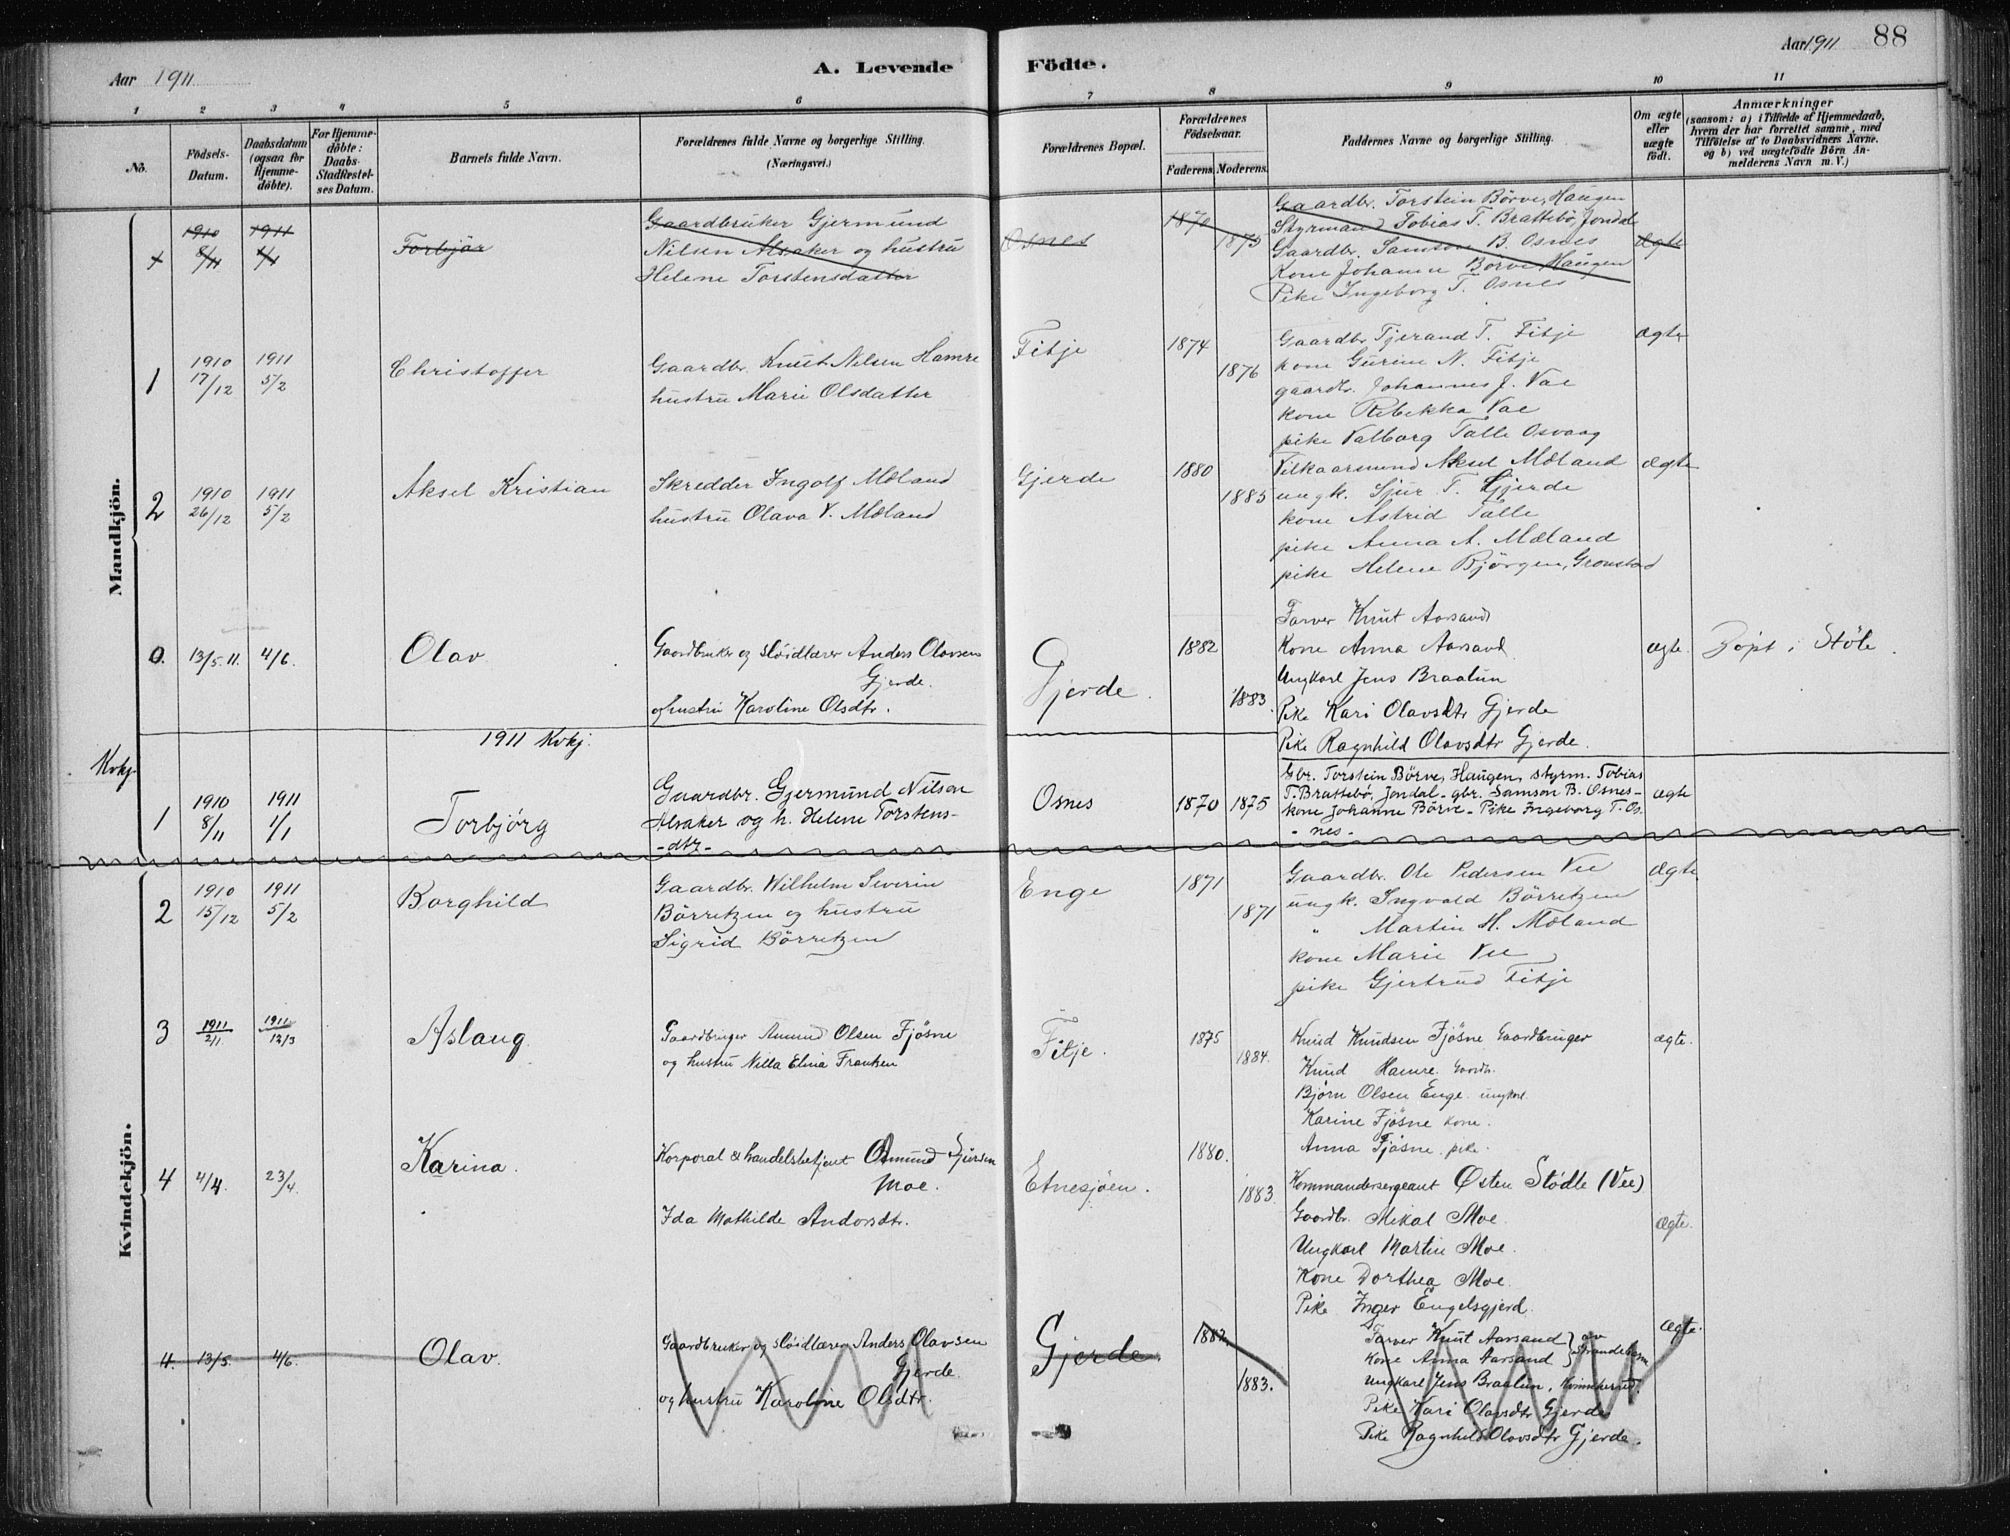 Aar 1911
A. Levende Födte.
Aar 1911 88
1 2 3 4 5 6 7 8 9 10 11
No.
Födsels-Datum.
Daabsdatum (ogsaa for Hjemme-döbte).
For Hjemme-döbte: Daabs-Stadfestel-ses Datum.
Barnets fulde Navn.
Forældrenes fulde Navne og borgerlige Stilling.
(Næringsvei.)
Forældrenes Bopæl.
Forældrenes Födselsaar.
Faderens. Moderens.
Faddernes Navne og borgerlige Stilling.
Om ægte eller uægte födt.
Anmærkninger
(saasom: a) i Tilfælde af Hjemmedaab, hvem der har forrettet samme, med Tilföielse af to Daabsvidners Navne, og b) ved uægtefödte Börn An-melderens Navn m. V.)
Mandkjön.
1 1910 8/11 1911 1/1
Torbjör
Gaardbruker Gjermund
Nilsen Alsaker og hustru
Helene Torstensdatter
Osnes
1870 1875
Gaardbr. Torstein Börve, Haugen
Styrmand Tobias T. Brattebö, Jondal
Gaardbr. Samson B. Osnes
Kone Johanne Börve Haugen
Pike Ingeborg T. Osnes
ægte
1 1910 17/12 1911 5/2
Christoffer
Gaardbr. Knut Nilsen Hamre
hustru Marie Olsdatter
Fitje
1874 1876
Gaardbr. Tjerand T. Fitje
kone Gurine N. Fitje
gaardbr. Johannes J. Vae
kone Rebekka Vae
pike Valborg Talle Osvaag
ægte
2 1910 26/12 1911 5/2
Aksel Kristian
Skredder Ingolf Mæland
hustru Olava V. Mæland
Gjerde
1880 1885
Vilkaarsmand Aksel Mæland
ungk. Sjur T. Gjerde
kone Astrid Talle
pike Anna A. Mæland
pike Helene Björgen, Gronstad
ægte
0. 13/5.11. 4/6.
Olav
Gaardbruker og sløidlærer Anders Olavsen
Gjerde.
og hustru Karoline Olsdtr.
Gjerde.
1882 1883.
Farver Knut Aarsand
Kone Anna Aarsand
Ungkarl Jens Braatun
Pike Kari Olavsdtr Gjerde
Pike Ragnhild Olavsdtr Gjerde.
ægte.
Døpt i Støle.
1911 Kvkj.
Kvkj.
1 1910 8/11 1911 1/1
Torbjørg
Gaardbr. Gjermund Nilsen
Alsaker og h. Helene Torstens-
-dtr-
Osnes
1870 1875
Gbr. Torstein Börve, Haugen, styrm. Tobias
T. Brattebö, Jondal - gbr. Samson B. Osnes -
kone Johanne Börve - Pike Ingeborg T. Os-
-nes-
ægte
Kvindekjön.
2 1910 15/12 1911 5/2
Borghild
Gaardbr. Wilhelm Severin
Börretzen og hustru
Sigrid Börretzen
Enge
1871 1871
Gaardbr. Ole Pedersen Vee
ungk. Ingvald Börretzen
" Martin H. Mæland
kone Marie Vee
pike Gjertrud Fitje
ægte
3 1911 2/1 1911 12/3
Aslaug.
Gaardbruger Amund Olsen Fjøsne
og hustru Nilla Elina Franken
Fitje.
1875 1884.
Knud Knudsen Fjøsne Gaardbruger
Knud Hamre. Gaardbr.
Bjørn Olsen Enge. ungkarl.
Karine Fjøsne kone.
Anna Fjøsne. pike.
ægte.
4 4/4. 23/4.
Karina.
Korporal & handelsbetjent Osmund Sjursen
Moe.
Ida Mathilde Andersdtr.
Etnesjøen.
1880. 1883.
Kommandersergeant Østen Stødle (Vee).
Gaardbr. Mikal Moe.
Ungkarl Martin Moe.
Kone Dorthea Moe.
Pike Inger Engelsgjerd.
ægte.
4. 13/5. 4/6.
Olav.
Gaardbruker og sløidlærer Anders Olavsen
Gjerde.
og hustru Karoline Olsdtr.
Gjerde.
1882. 1883.
Farver Knut Aarsand } av
Kone Anna Aarsand } Strandebarm
Ungkarl Jens Braatun, Kvinnherred.
Pike Kari Olavsdtr Gjerde
Pike Ragnhild Olavsdtr Gjerde.
ægte.